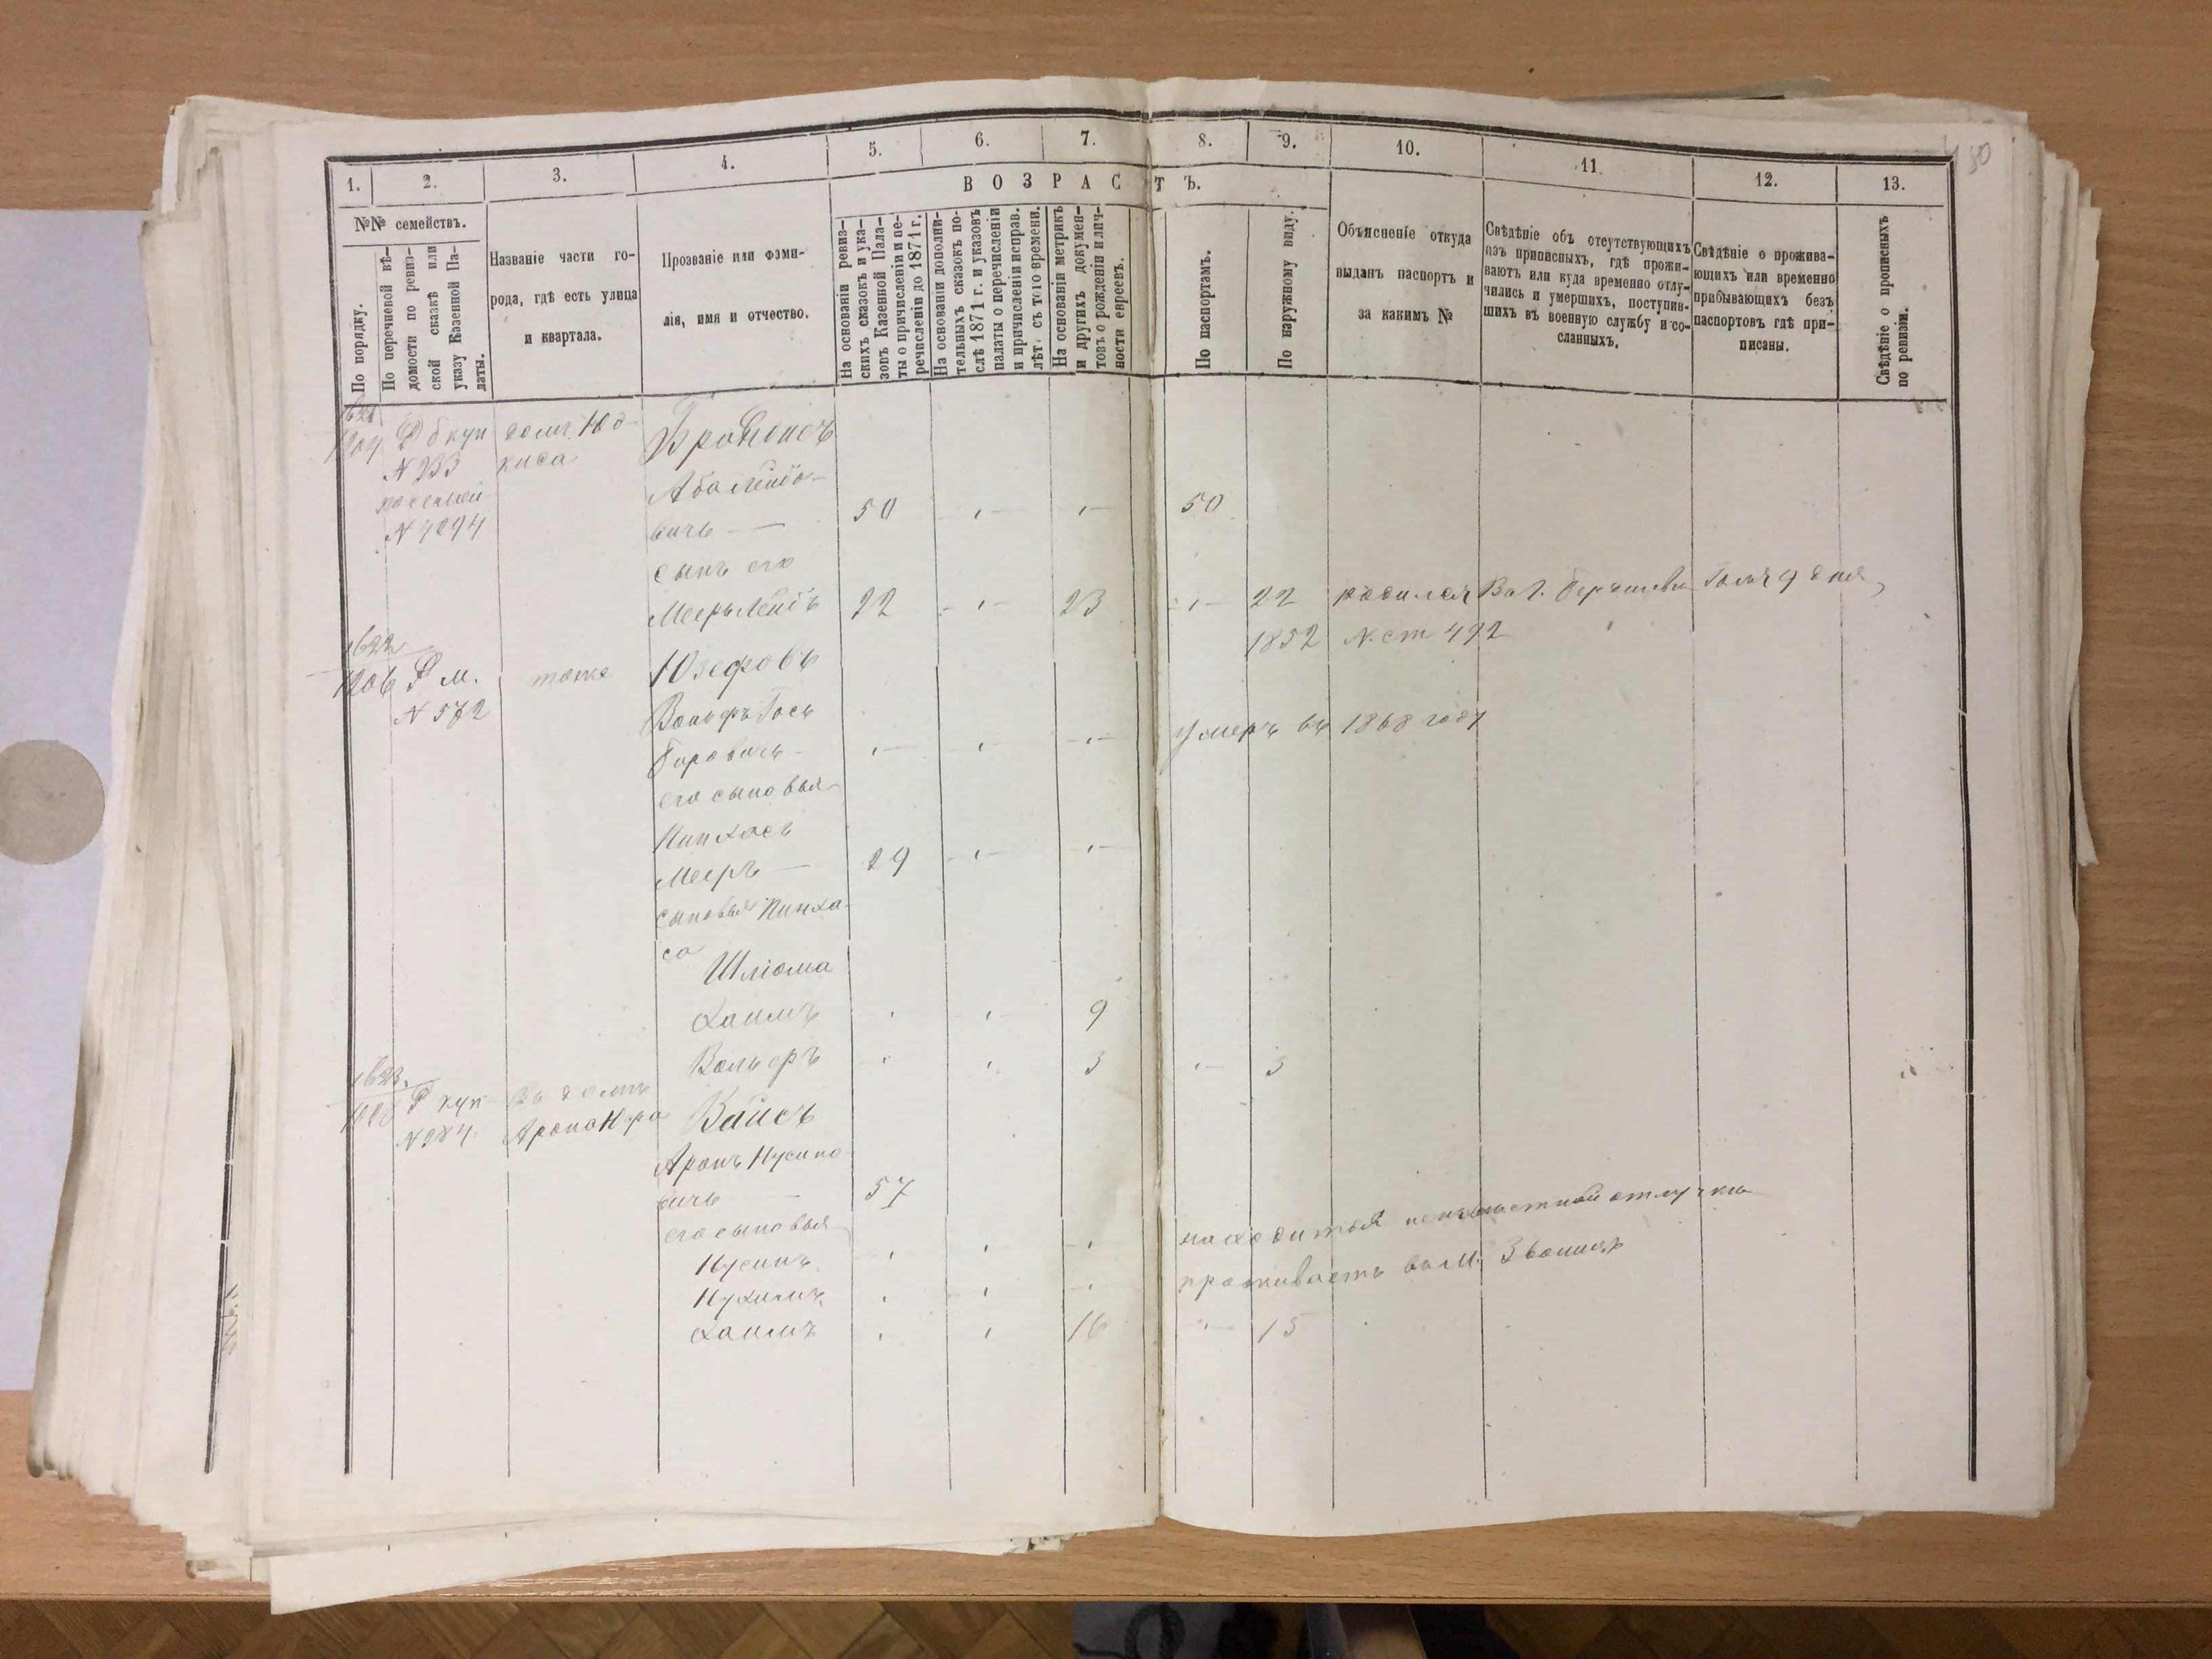 1. 2. 3. 4. 5. 6. 7. 8. 9. 10. 11. 12. 13.
ВОЗРАСТЪ.
№№ семействъ.
По порядку.
По перечневой вѣ-
домости по ревиз-
ской сказкѣ или
указу Казенной Па-
латы.
Названіе части го-
рода, гдѣ есть улица
и квартала.
Прозваніе или фами-
лія, имя и отчество.
На основаніи ревиз-
скихъ сказокъ и ука-
зовъ Казенной Пала-
ты о причисленіи и пе-
речисленіи до 1871 г.
На основаніи дополни-
тельныхъ сказокъ по-
слѣ 1871 г. и указовъ
палаты о перечисленіи
и причисленіи исправ.
лѣт. съ того времени.
На основаніи метрикъ
и другихъ докумен-
товъ о рожденіи и лич-
ности евреевъ.
По паспортамъ.
По наружному виду.
Объясненіе откуда
выданъ паспортъ и
за какимъ №
Свѣдѣніе объ отсутствующихъ
изъ приписныхъ, гдѣ прожи-
ваютъ или куда временно отлу-
чились и умершихъ, поступив-
шихъ въ военную службу и со-
сланныхъ.
Свѣдѣніе о прожива-
ющихъ или временно
прибывающихъ безъ
паспортовъ гдѣ при-
писаны.
Свѣдѣніе о прописныхъ
по ревизіи.
1621
куп
N 233
посемей
N 4294
Аба Лейбо-
вичь — 50 50
сынъ его
Меерь Лейбъ 22 23 22 родился Бердичевѣ
1852 N. ст 492
1622
1206 Р м. тоже Юзефовъ
N 572
Вольфъ Гось
умеръ въ 1868 году
его сыновья
Пинхасъ
Мееръ — 29
сыновья Пинха-
са
Шліома
Хаимъ 9
Вольфъ 3 3
1623.
Р куп Въ домѣ
N 284. Арона Вайсъ
Аронъ Нусино
вичь — 57
его сыновья
Нусинъ находиться неизвестной отлучки
Нухимъ проживаетъ въ м.
Хаимъ 16 15